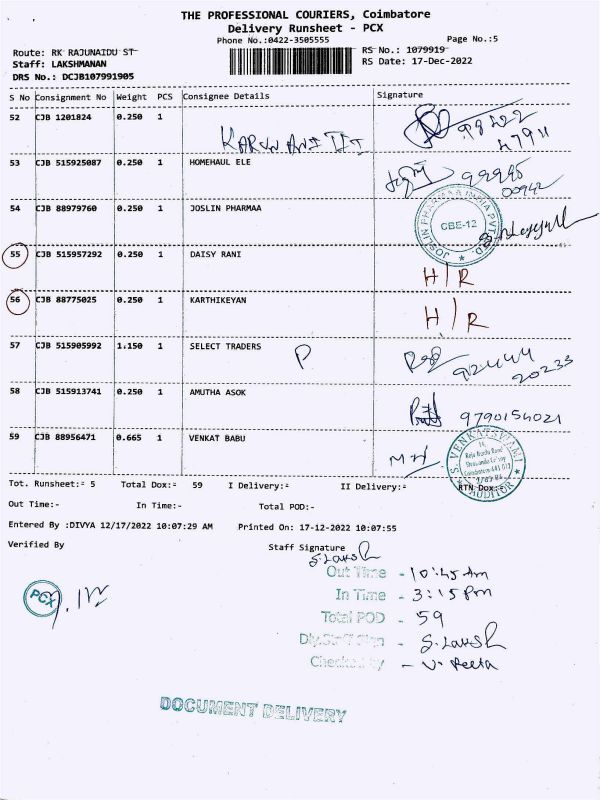 THE PROFESSIONAL COURIERS, Coimbatore
Delivery Runsheet - PCX
Phone No.:0422-3505555
Page No.:5
Route: RK RAJUNAIDU ST
RS No.: 1079919
Staff: LAKSHMANAN
RS Date: 17-Dec-2022
DRS No.: DCJB107991905
S No Consignment No Weight PCS Consignee Details Signature
52 CJB 1201824 0.250 1
53 CJB 515925087 0.250 1 HOMEHAUL ELE
54 CJB 88979760 0.250 1 JOSLIN PHARMAA
JOSLIN PHARMAA INDIA PVT. LTD.
CBE-12
55 CJB 515957292 0.250 1 DAISY RANI H/R
56 CJB 88775025 0.250 1 KARTHIKEYAN H/R
57 CJB 515905992 1.150 1 SELECT TRADERS P 92444
20233
58 CJB 515913741 0.250 1 AMUTHA ASOK 9790154021
59 CJB 88956471 0.665 1 VENKAT BABU
AUDITOR
Tot. Runsheet:- 5 Total Dox:- 59 I Delivery:- II Delivery:- RTN Dox:-
Out Time:- In Time:- Total POD:-
Entered By :DIVYA 12/17/2022 10:07:29 AM Printed On: 17-12-2022 10:07:55
Verified By Staff Signature
S. Laksh
Out Time - 10:45 Am
In Time - 3:15 Pm
PCX
Total POD - 59
Dly.Staff Sign - S. Laksh
Checked by
DOCUMENT DELIVERY